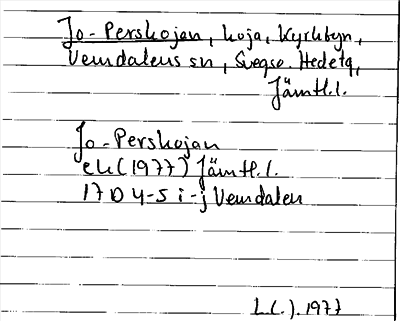 Jo-Perskojan, koja, Kyrkbyn,
Vemdalens sn, Svegs o. Hede tg,
Jämtl.l.
Jo-Perskojan
ek (1977) Jämtl.l.
17D 4-5 i-j Vemdalen
L.L.). 1977